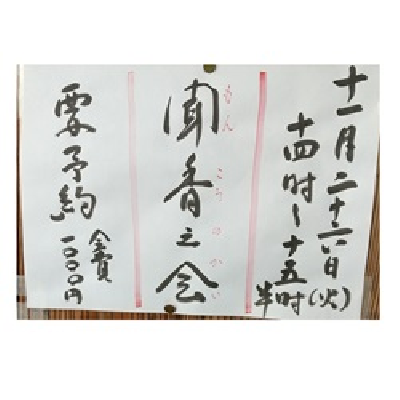 十一月二十六日(火)
十四時〜十五時半
聞香之会
もんこうのかい
要予約
会費
一〇〇〇円